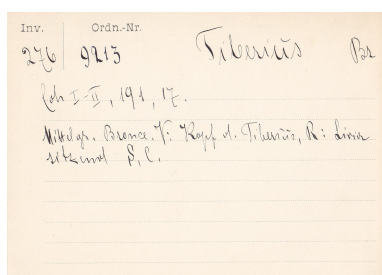 Inv. Ordn.-Nr.
276 9213 Tiberius Br
Coh I-II, 191, 17.
Mittelgr. Bronce. V: Kopf d. Tiberius, R: Livia
sitzend S. C.